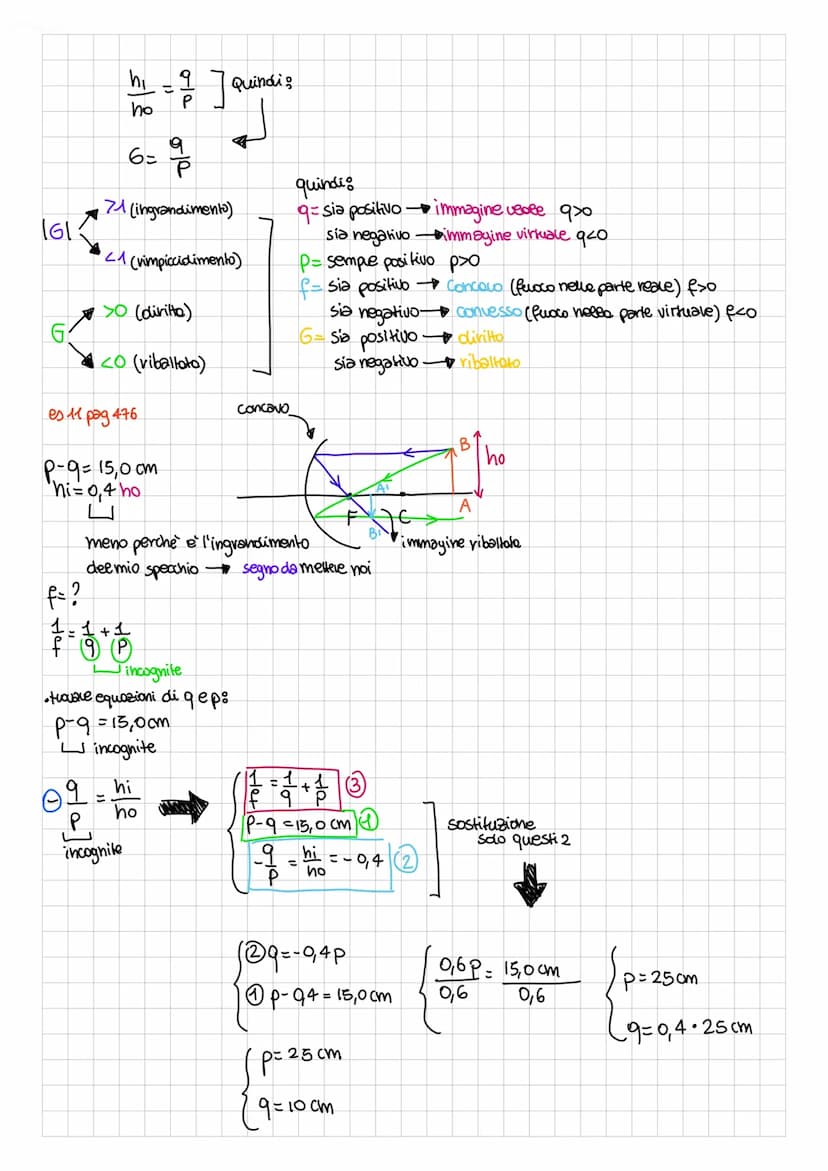 hi/ho = q/p ] Quindi:
G = q/p
quindi:
|G| >1 (ingrandimento)
<1 (rimpiccidimento)
G >0 (diritto)
<0 (ribaltato)
q = sia positivo → immagine reale q>0
sia negativo → immagine virtuale q<0
p = sempre positivo p>0
f = sia positivo → concavo (fuoco nella parte reale) f>0
sia negativo → convesso (fuoco nella parte virtuale) f<0
G = sia positivo → diritto
sia negativo → ribaltato
es 11 pag 476
concavo
B
ho
A
A1
F
C
B1
immagine ribaltata
p-q = 15,0 cm
hi = 0,4 ho
meno perchè è l'ingrandimento
del mio specchio → segno da mettere noi
f = ?
1/f = 1/q + 1/p
incognite
• trovare equazioni di q e p:
p-q = 15,0 cm
incognite
- q/p = hi/ho
incognite
1/f = 1/q + 1/p ③
p-q = 15,0 cm ①
-q/p = hi/ho = -0,4 ②
sostituzione
solo questi 2
② q = -0,4p
① p-0,4 = 15,0 cm
0,6p/0,6 = 15,0 cm/0,6
p = 25 cm
q = 0,4 · 25 cm
p = 25 cm
q = 10 cm